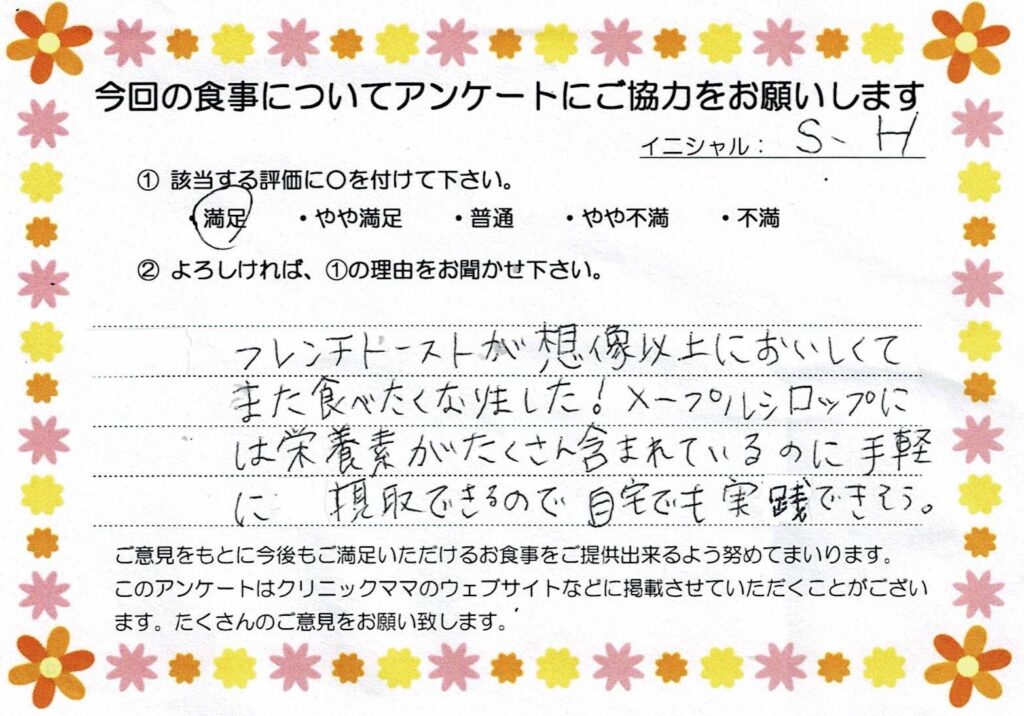 今回の食事についてアンケートにご協力をお願いします
イニシャル： S、H
① 該当する評価に〇を付けて下さい。
・満足 ・やや満足 ・普通 ・やや不満 ・不満
② よろしければ、①の理由をお聞かせ下さい。
フレンチトーストが想像以上においしくて
また食べたくなりました！メープルシロップに
は栄養素がたくさん含まれているのに手軽
に 摂取できるので自宅でも実践できそう。
ご意見をもとに今後もご満足いただけるお食事をご提供出来るよう努めてまいります。
このアンケートはクリニックママのウェブサイトなどに掲載させていただくことがござい
ます。たくさんのご意見をお願い致します。